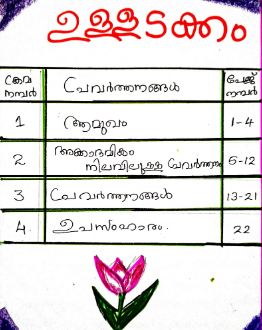 ഉള്ളടക്കം
ക്രമ നമ്പർ പ്രവർത്തനങ്ങൾ പേജ് നമ്പർ
1 ആമുഖം 1-4
2 അക്കാദമികം
നിലവിലുള്ള പ്രവർത്തനം 5-12
3 പ്രവർത്തനങ്ങൾ 13-21
4. ഉപസംഹാരം. 22